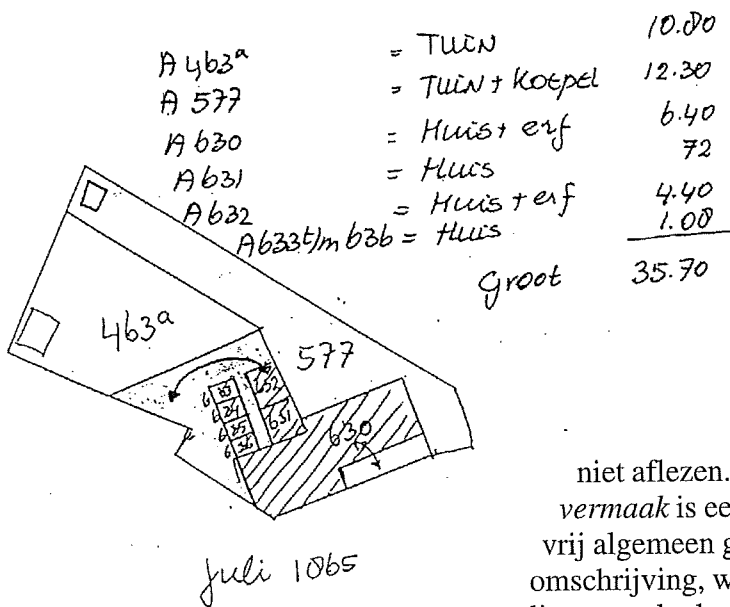 A 463a = TUIN 10.80
A 577 = TUIN + Koepel 12.30
A 630 = Huis + erf 6.40
A 631 = Huis 72
A 632 = Huis + erf 4.40
A 633 t/m 636 = Huis 1.08
groot 35.70
463a
577
632
631
630
6 33
6 34
6 35
6 36
juli 1865
niet aflezen.
vermaak is ee
vrij algemeen g
omschrijving, w